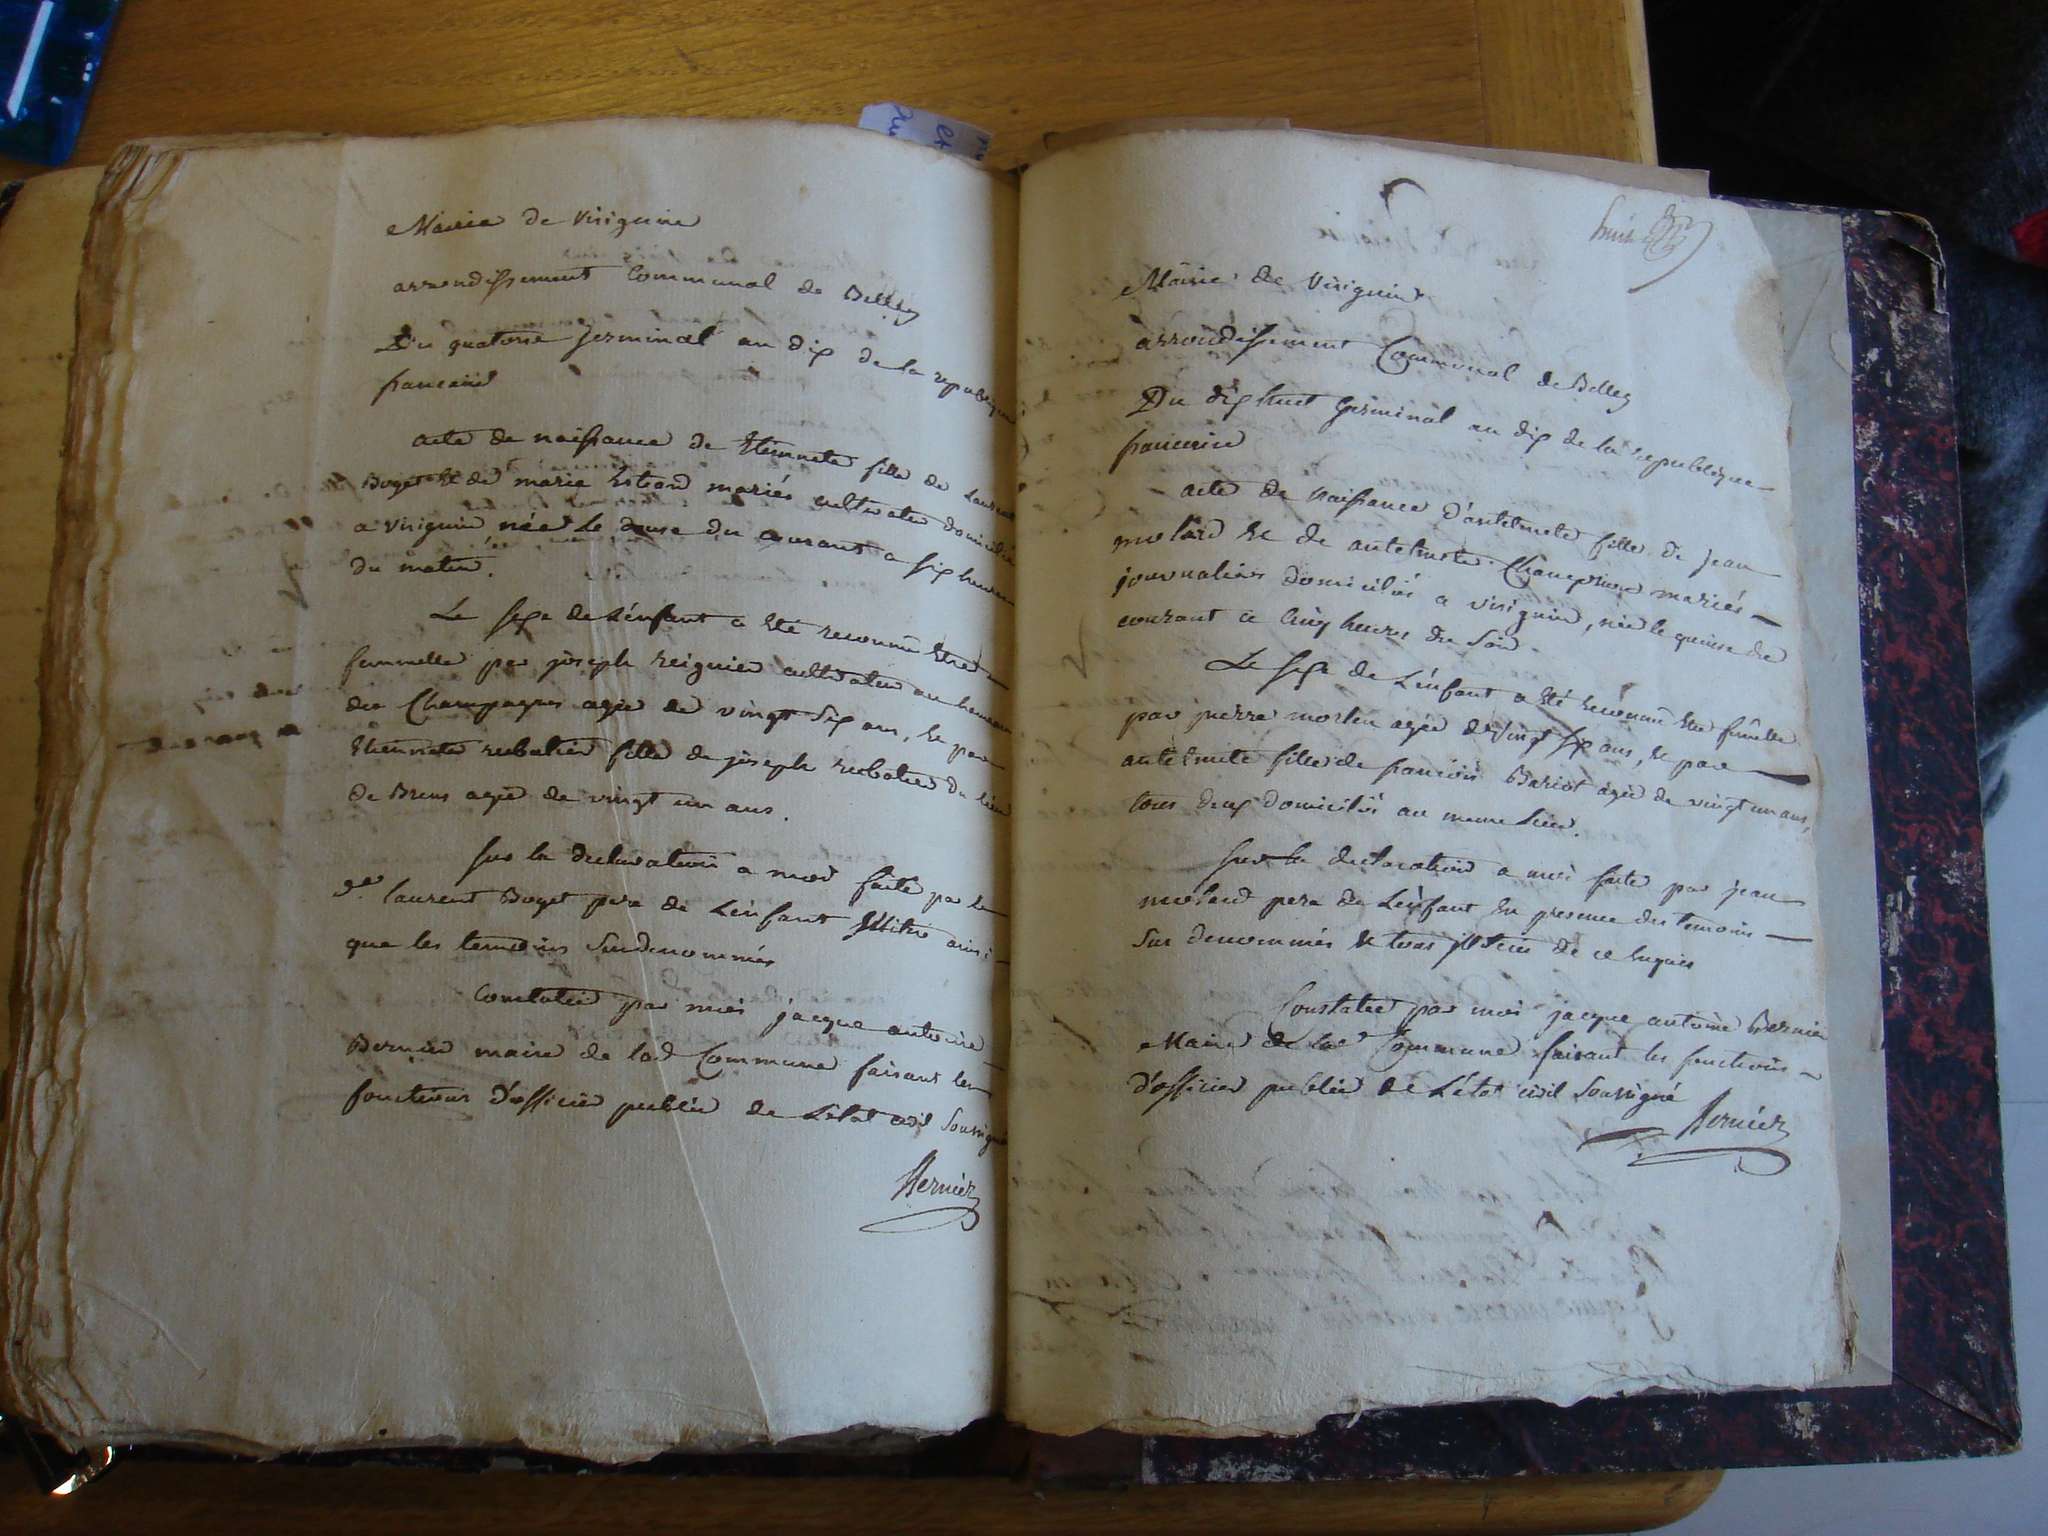 Mairie de Virignin
arrondissement Communal de Belley
Du quatorse germinal an dix de la republique
francaise
acte de naissance de Etiennete fille de Laurent
Boget et de marie mariés cultivateur domicilié
a Virignin née Le douse du courant a six heures
du matin.
Le sexe de L'énfant a été reconnu être
femmelle par joseph reignier cultivateur au hameau
des Champagnes agée de vingt Six ans, et par
Etiennete rubatier fille de joseph rubatier du lieu
de Brens agée de vingt un ans.
Sur la declaration a moi faite par le
dt. laurent Boget pere de L'énfant illitré ainsi
que les temoins Susdenommés
Constatée par moi jacque antoine
Bernier maire de lad Commune faisant les
fonctions d'officier publie de L'état civil Soussigné
Bernier
huit
Mairie de Virignin
arrondissement Communal de Belley
Du dix huit germinal an dix de la republique
francaise
acte de naissance d'antelmete fille de jean
molard et de antelmete Champion mariés
journaliers domiciliés a virignin, née le quinse du
courant a cinq heures du Soir
Le sexe de L'énfant a été reconnu etre fémelle
par pierre agée de vingt six ans, et par
antelmete fille de francois Bariot agée de vingt un ans,
tous deux domiciliés au meme Lieu.
Sur la declaration a moi faite par jean
molard pere de L'énfant En presence des temoins
Sus denommés & tous de ce Enquis
Constatée par moi jacque antoine Bernier
Maire de lad Commune faisant les fonctions
d'officier publie de L'état civil Soussigné
Bernier